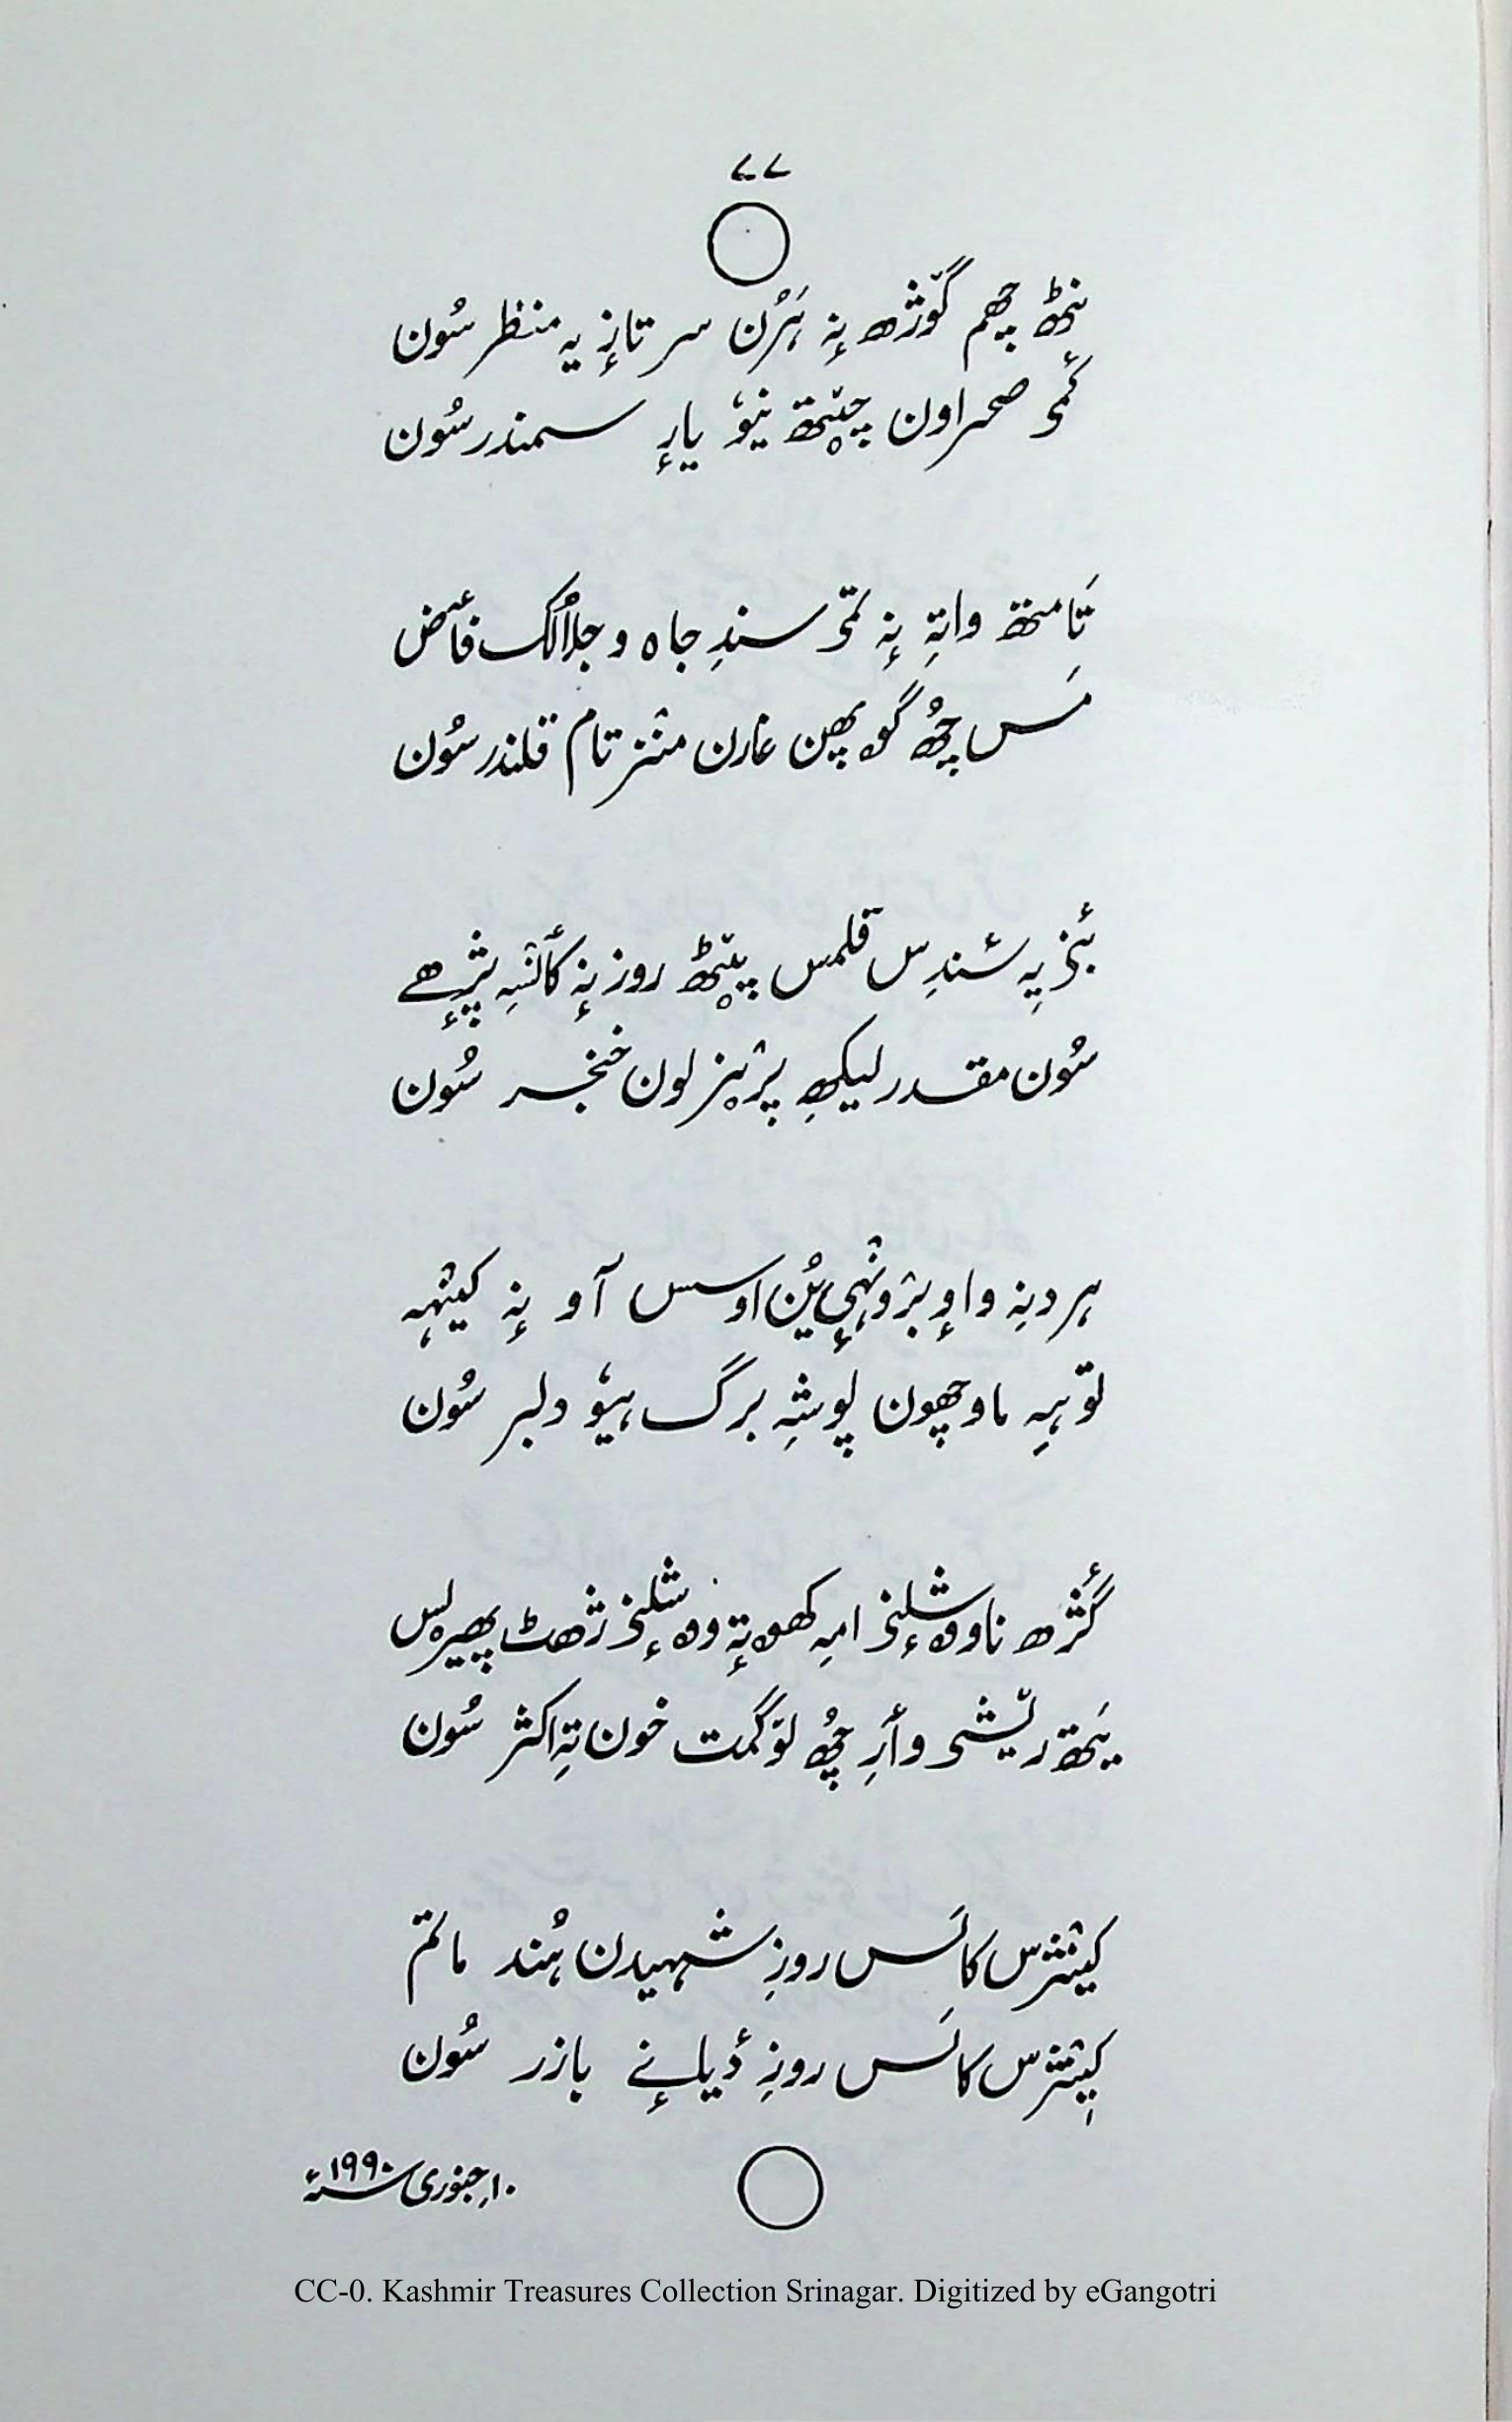 ۷۷
بٹھ چھم گوٚژھ نہٕ ہَرُن سر تازٕ یہ منظر سُون
کٔمۍ صحراون چیٚتھ نیوٗ یارٕ سمندر سُون
تَامتھ واتہِ نہٕ تمۍ سندِ جاہ و جلالُک فٲض
مَس چھُ گوپھن غارن منٛز تام قلندر سُون
بٔنۍ یہِ سٔندِس قلمس پیٚٹھ روز نہٕ کٲنٛسہِ پژھے
سُون مقدر لیکھِ پزٕنز لون خنجر سُون
ہردنہِ واوٕ برٛونٛہہٕ یُن اوسس آو نہٕ کینٛہہ
توٚہہِ ما وچھون پوشہِ برگ ہیوٗ دلبر سُون
گٔژھ نا ووشلٕنۍ امہِ کھوتہٕ ووشلٕنۍ ژھٹ پھیرلس
یَتھ ریٚشۍ وٲرِ چھُ لوٚگمت خون تہِ اکثر سُون
کیٛنٛژس کالَس روزِ شہیدن ہُند ماتم
کیٛنٛژس کالَس روزِ دُیانے بازر سُون
۱۰ جنوری ۱۹۹۰ء
CC-0. Kashmir Treasures Collection Srinagar. Digitized by eGangotri